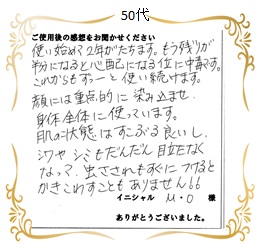 50代
ご使用後の感想をお聞かせください
使い始めて2年がたちます。もう残りが
粉になると心配になる位に中毒です。
これからもずぅーと使い続けます。
顔には重点的に染み込ませ、
身体全体に使っています。
肌の状態はすこぶる良いし、
シワやシミもだんだん目立たなく
なって、虫さされもすぐにつけると
かきこわすこともありません!!
イニシャル M・O 様
ありがとうございました。